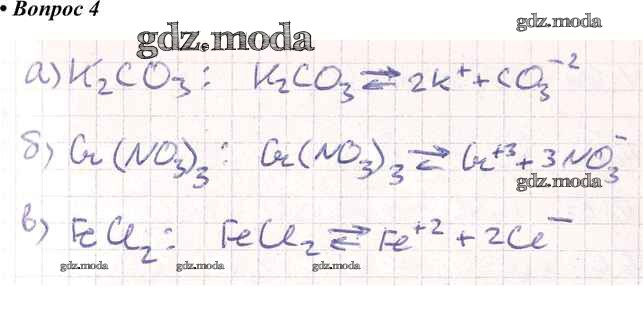 • Вопрос 4
gdz.moda
gdz.moda
а) K₂CO₃ : K₂CO₃ ⇄ 2K⁺ + CO₃⁻²
б) Cr(NO₃)₃ : Cr(NO₃)₃ ⇄ Cr⁺³ + 3NO₃⁻
gdz.moda
в) FeCl₂ : FeCl₂ ⇄ Fe⁺² + 2Cl⁻
gdz.moda gdz.moda gdz.moda